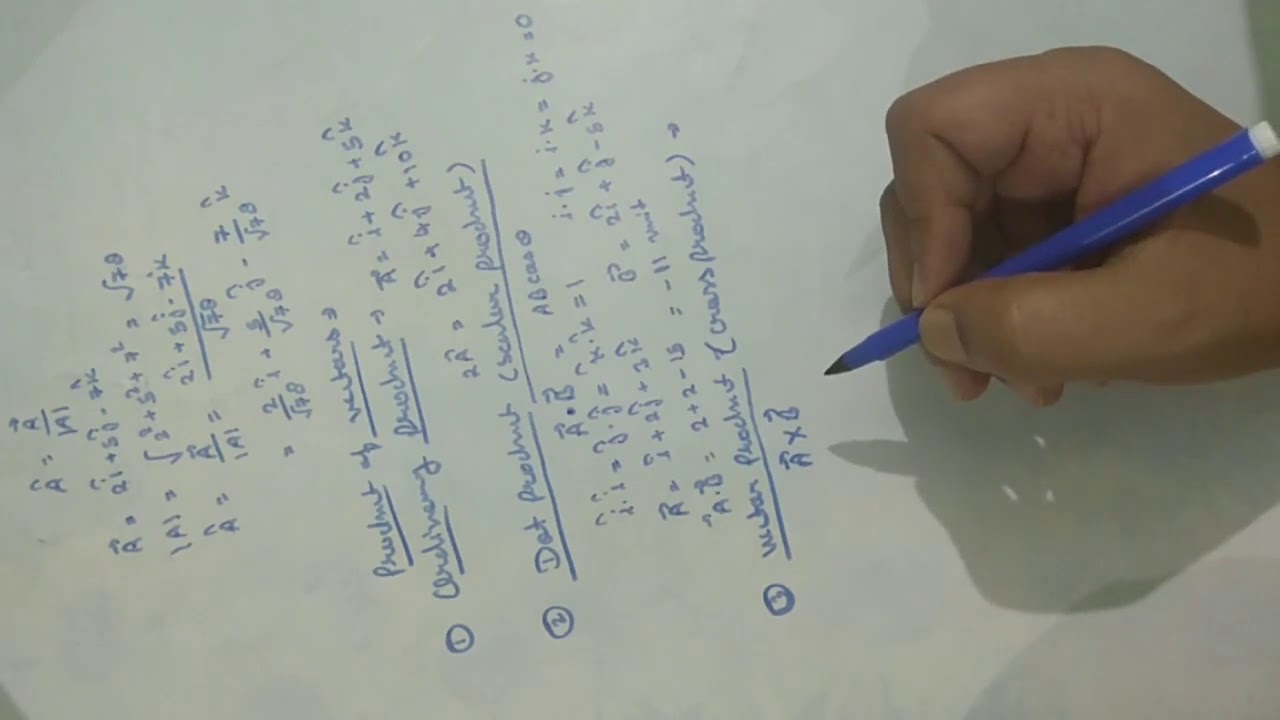 Â = A⃗ / |A|
A⃗ = 2î + 5ĵ - 7k̂
|A| = √2² + 5² + 7² = √78
Â = A⃗ / |A| = 2î + 5ĵ - 7k̂ / √78
= 2/√78 î + 5/√78 ĵ - 7/√78 k̂
Product of vectors →
① Ordinary product → A⃗ = î + 2ĵ + 5k̂
2A⃗ = 2î + 4ĵ + 10k̂
② Dot product (scalar product)
A⃗ . B⃗ = AB cos θ
î.î = ĵ.ĵ = k̂.k̂ = 1 i.j = i.k = j.k = 0
A⃗ = î + 2ĵ + 3k̂ B⃗ = 2î + ĵ - 5k̂
A⃗.B⃗ = 2 + 2 - 15 = -11 unit
③ vector product (cross product) →
A⃗ × B⃗